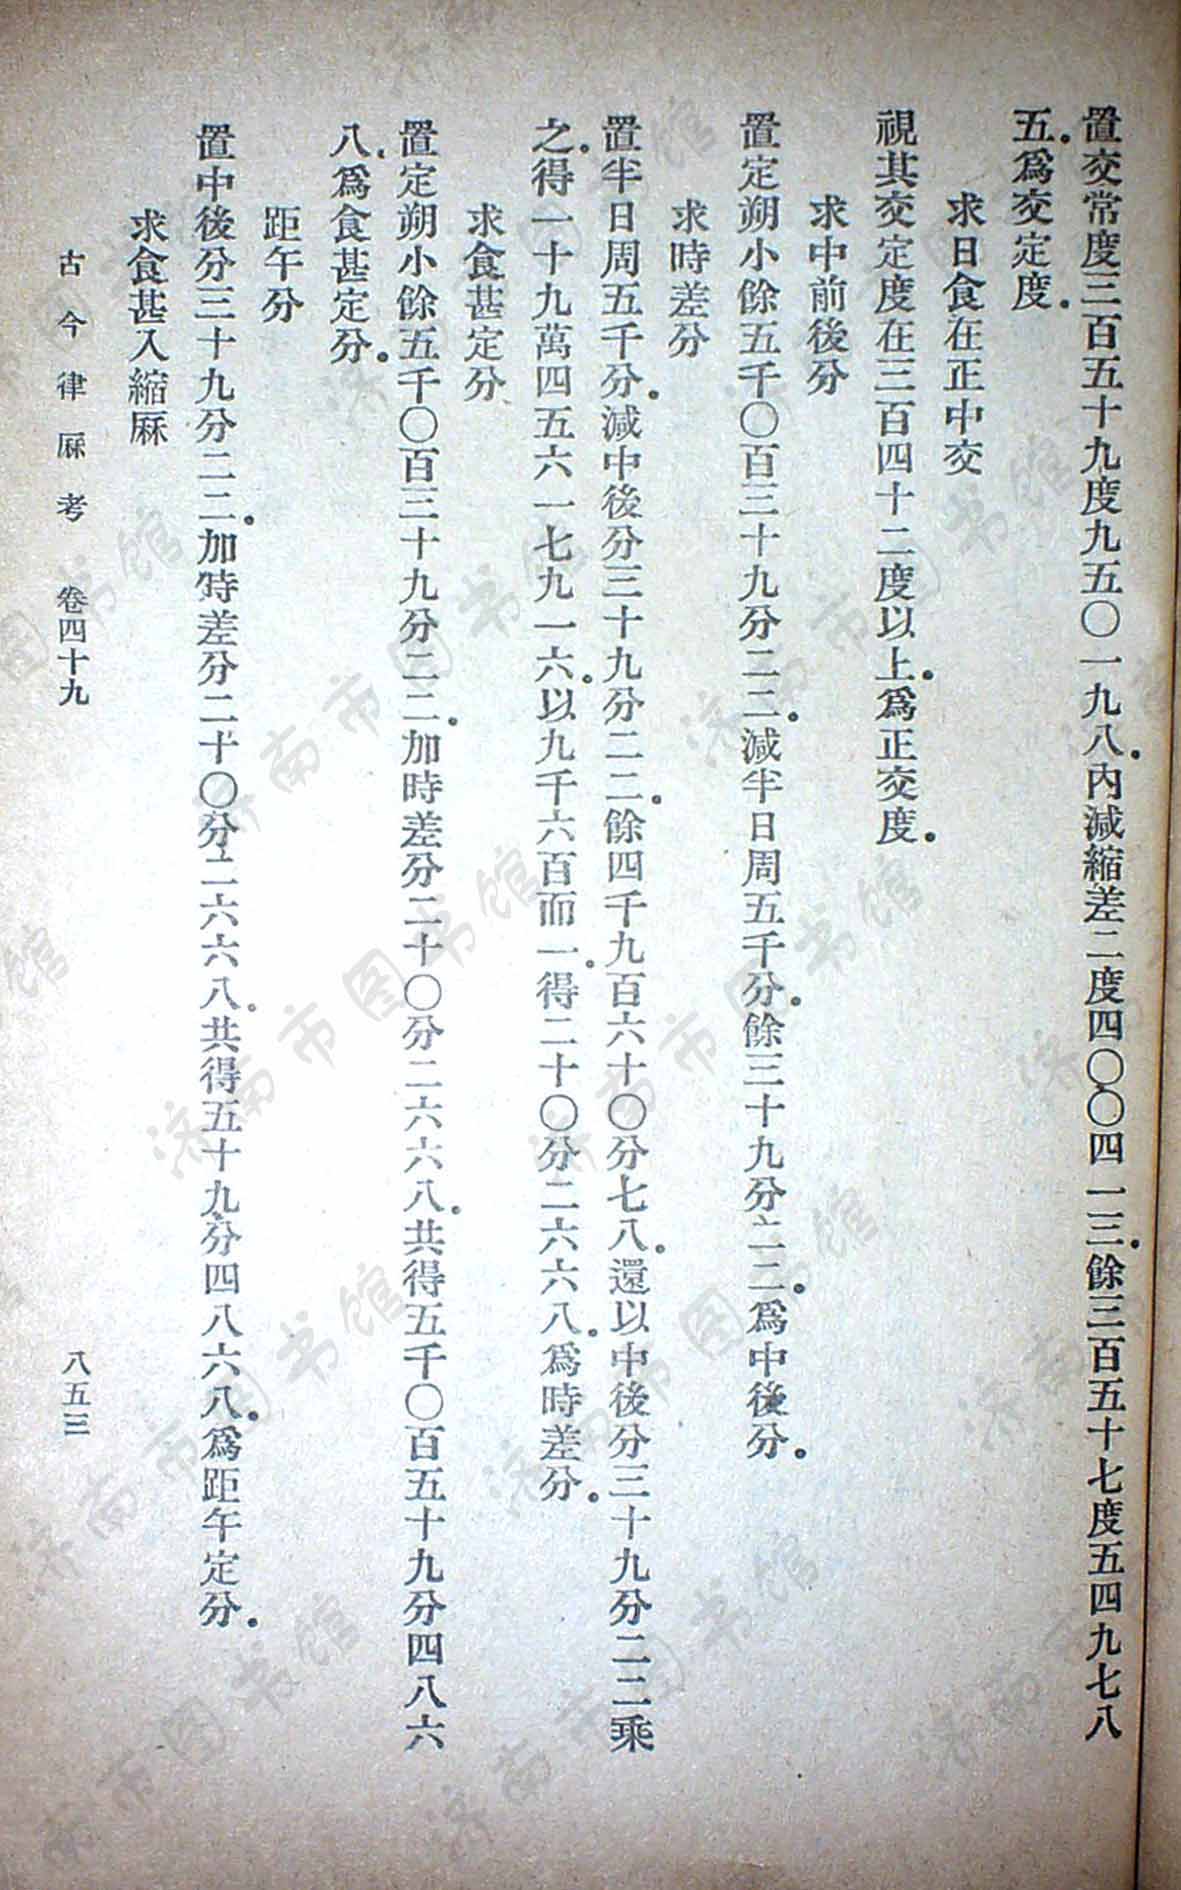 置交常度三百五十九度九五〇一九八。內減縮差二度四〇〇四一三。餘三百五十七度五四九七八
五。爲交定度。
求日食在正中交
視其交定度在三百四十二度以上。爲正交度。
求中前後分
置定朔小餘五千〇百三十九分二二。減半日周五千分。餘三十九分二二。爲中後分。
求時差分
置半日周五千分。減中後分三十九分二二。餘四千九百六十〇分七八。還以中後分三十九分二二乘
之。得一十九萬四五六一七九一六。以九千六百而一。得二十〇分二六六八。爲時差分。
求食甚定分
置定朔小餘五千〇百三十九分二二。加時差分二十〇分二六六八。共得五千〇百五十九分四八六
八。爲食甚定分。
距午分
置中後分三十九分二二。加時差分二十〇分二六六八。共得五十九分四八六八。爲距午定分。
求食甚入縮厤
古今律厤考 卷四十九 八五三
济南市图书馆